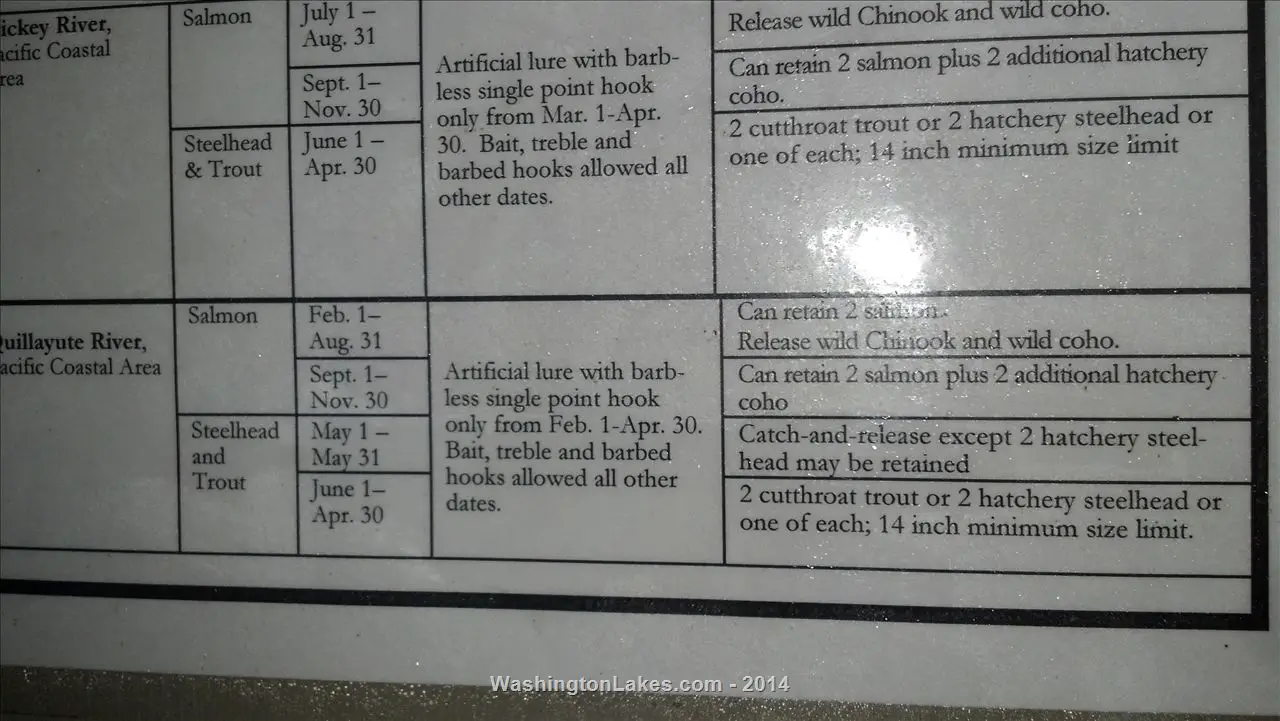 ickey River,
acific Coastal
rea
Salmon
July 1 –
Aug. 31
Sept. 1–
Nov. 30
Steelhead
& Trout
June 1 –
Apr. 30
Artificial lure with barb-
less single point hook
only from Mar. 1-Apr.
30. Bait, treble and
barbed hooks allowed all
other dates.
Release wild Chinook and wild coho.
Can retain 2 salmon plus 2 additional hatchery
coho.
2 cutthroat trout or 2 hatchery steelhead or
one of each; 14 inch minimum size limit
uillayute River,
acific Coastal Area
Salmon
Feb. 1–
Aug. 31
Sept. 1–
Nov. 30
Steelhead
and
Trout
May 1 –
May 31
June 1–
Apr. 30
Artificial lure with barb-
less single point hook
only from Feb. 1-Apr. 30.
Bait, treble and barbed
hooks allowed all other
dates.
Can retain 2 salmon.
Release wild Chinook and wild coho.
Can retain 2 salmon plus 2 additional hatchery
coho
Catch-and-release except 2 hatchery steel-
head may be retained
2 cutthroat trout or 2 hatchery steelhead or
one of each; 14 inch minimum size limit.
WashingtonLakes.com - 2014